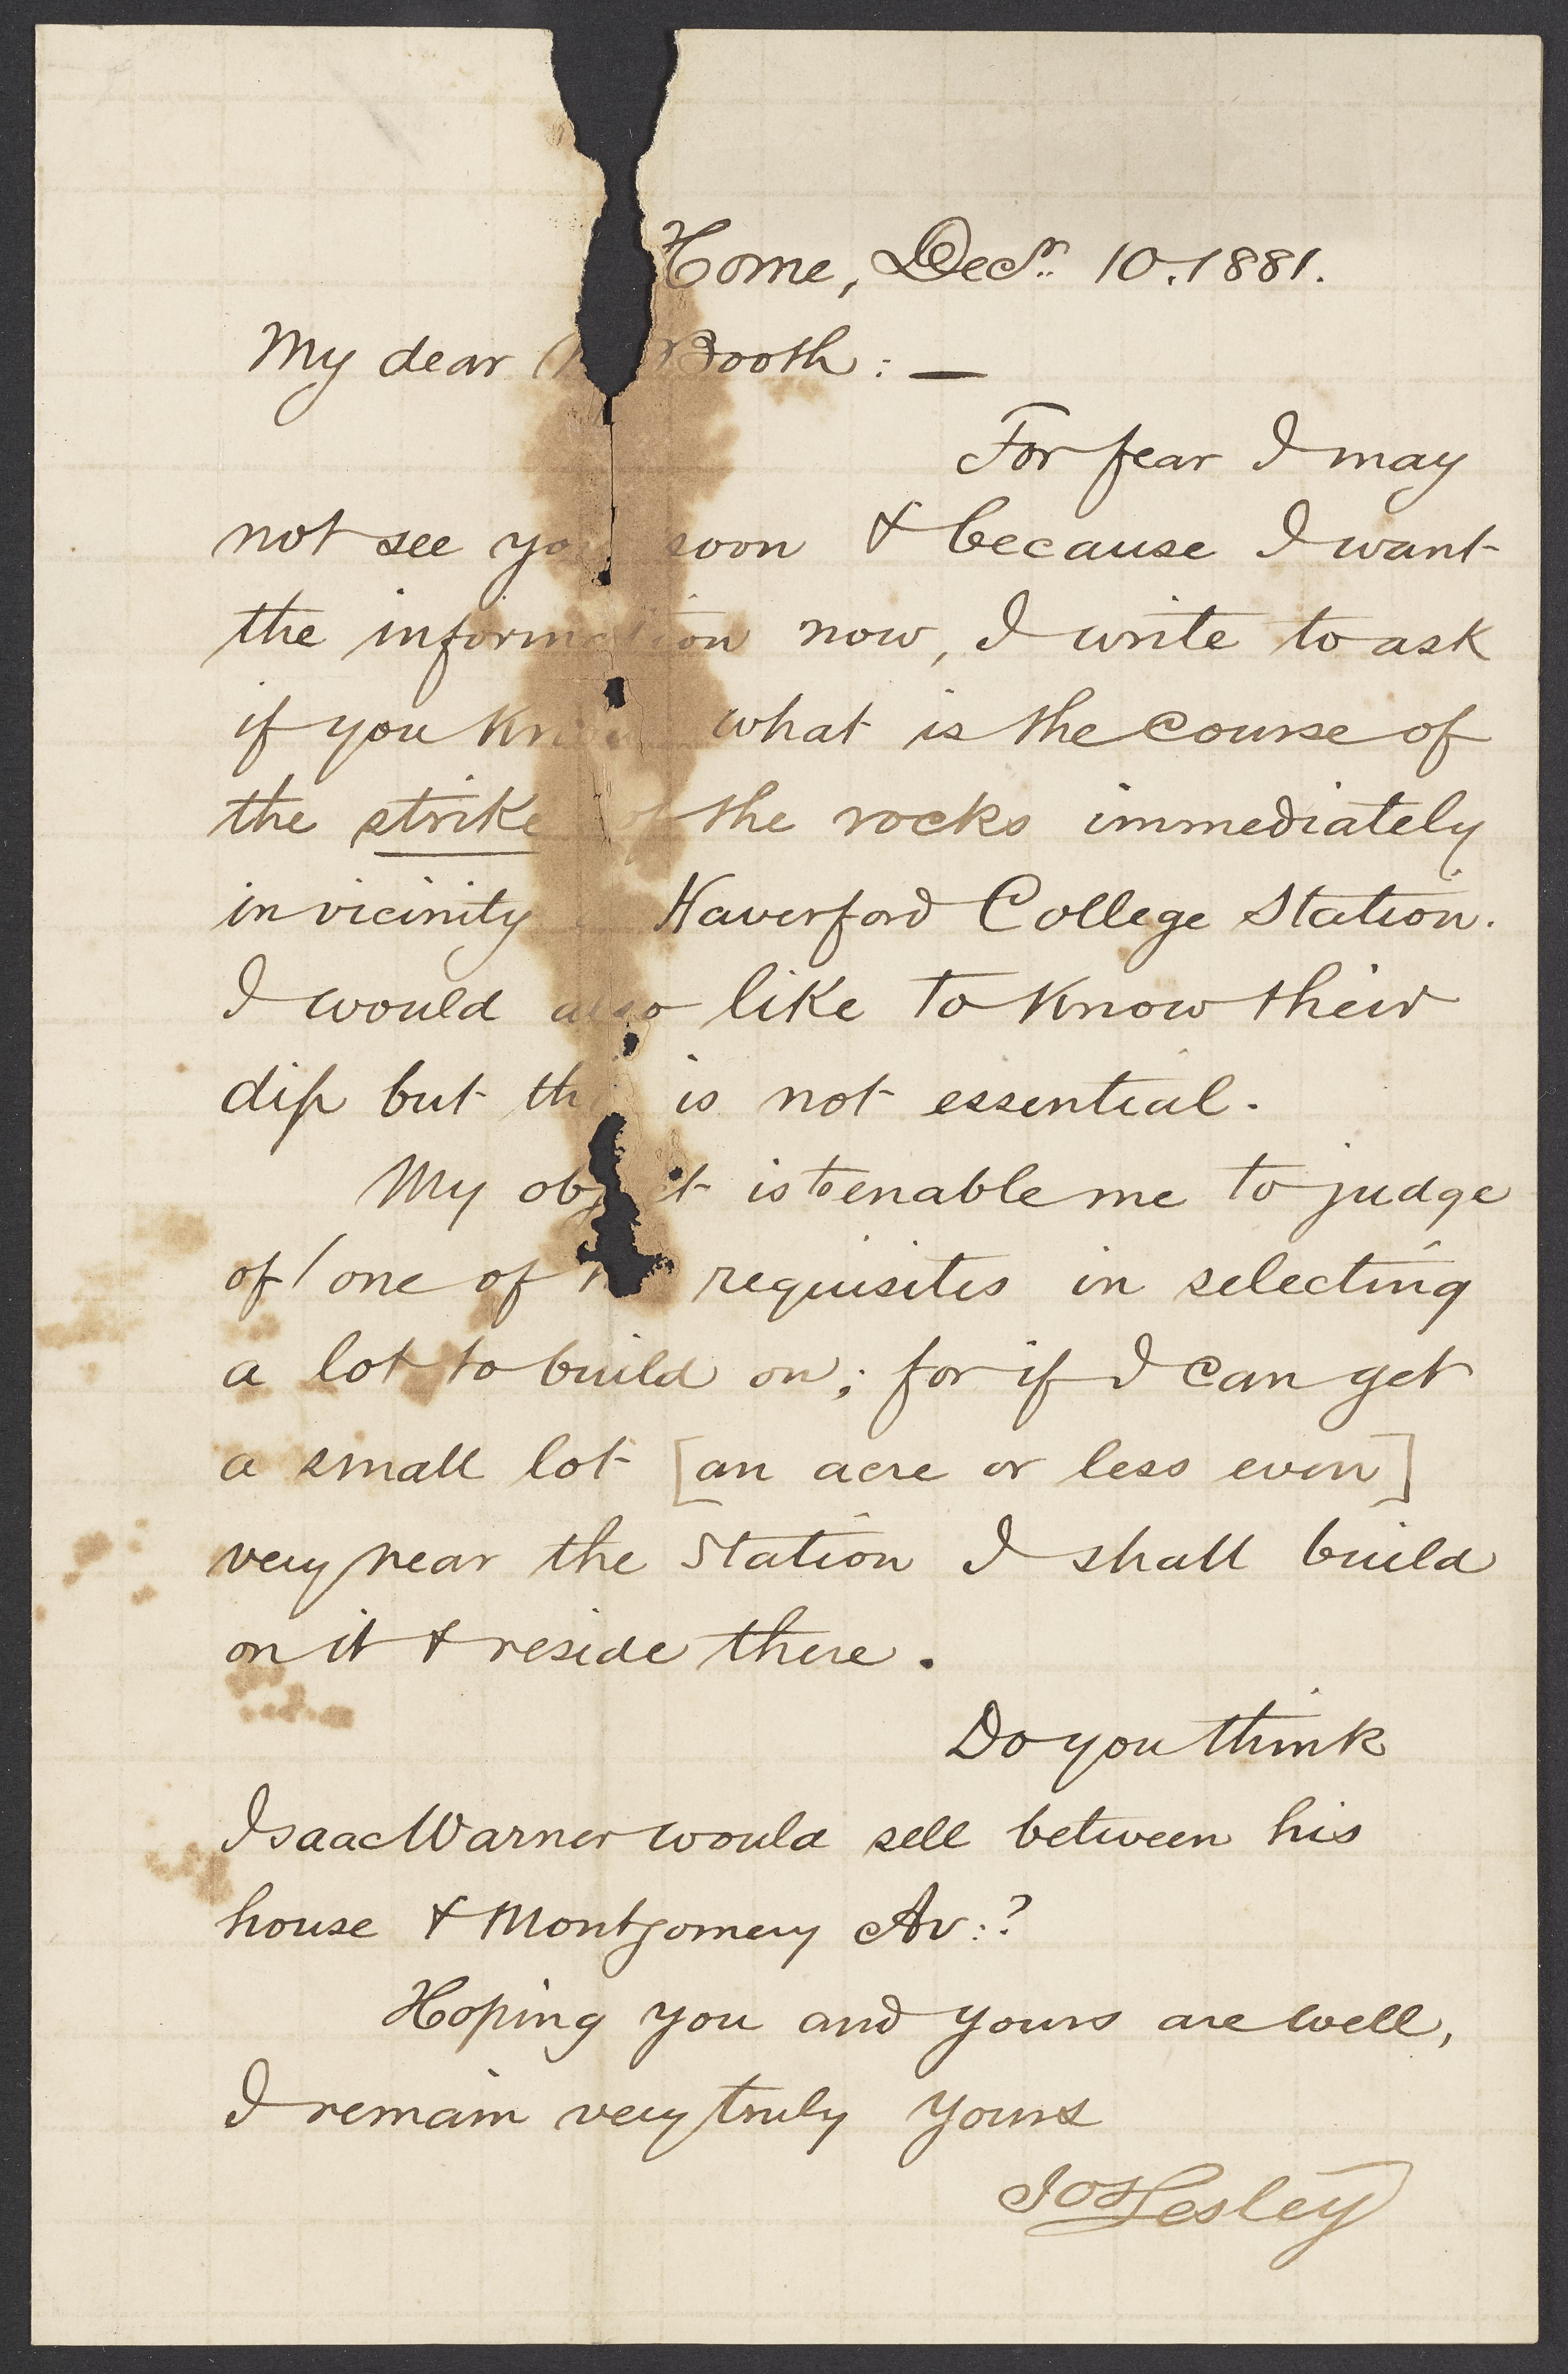 Home, Decr. 10. 1881.
My dear Booth: —
For fear I may
not see you soon & because I want
the information now, I write to ask
if you know what is the course of
the strike of the rocks immediately
in vicinity Haverford College Station.
I would also like to know their
dip but is not essential.
My object is to enable me to judge
of / one of requisites in selecting
a lot to build on; for if I can get
a small lot [an acre or less even]
very near the Station I shall build
on it & reside there.
Do you think
Isaac Warner would sell between his
house & Montgomery Av:?
Hoping you and yours are well,
I remain very truly yours
Jos Lesley